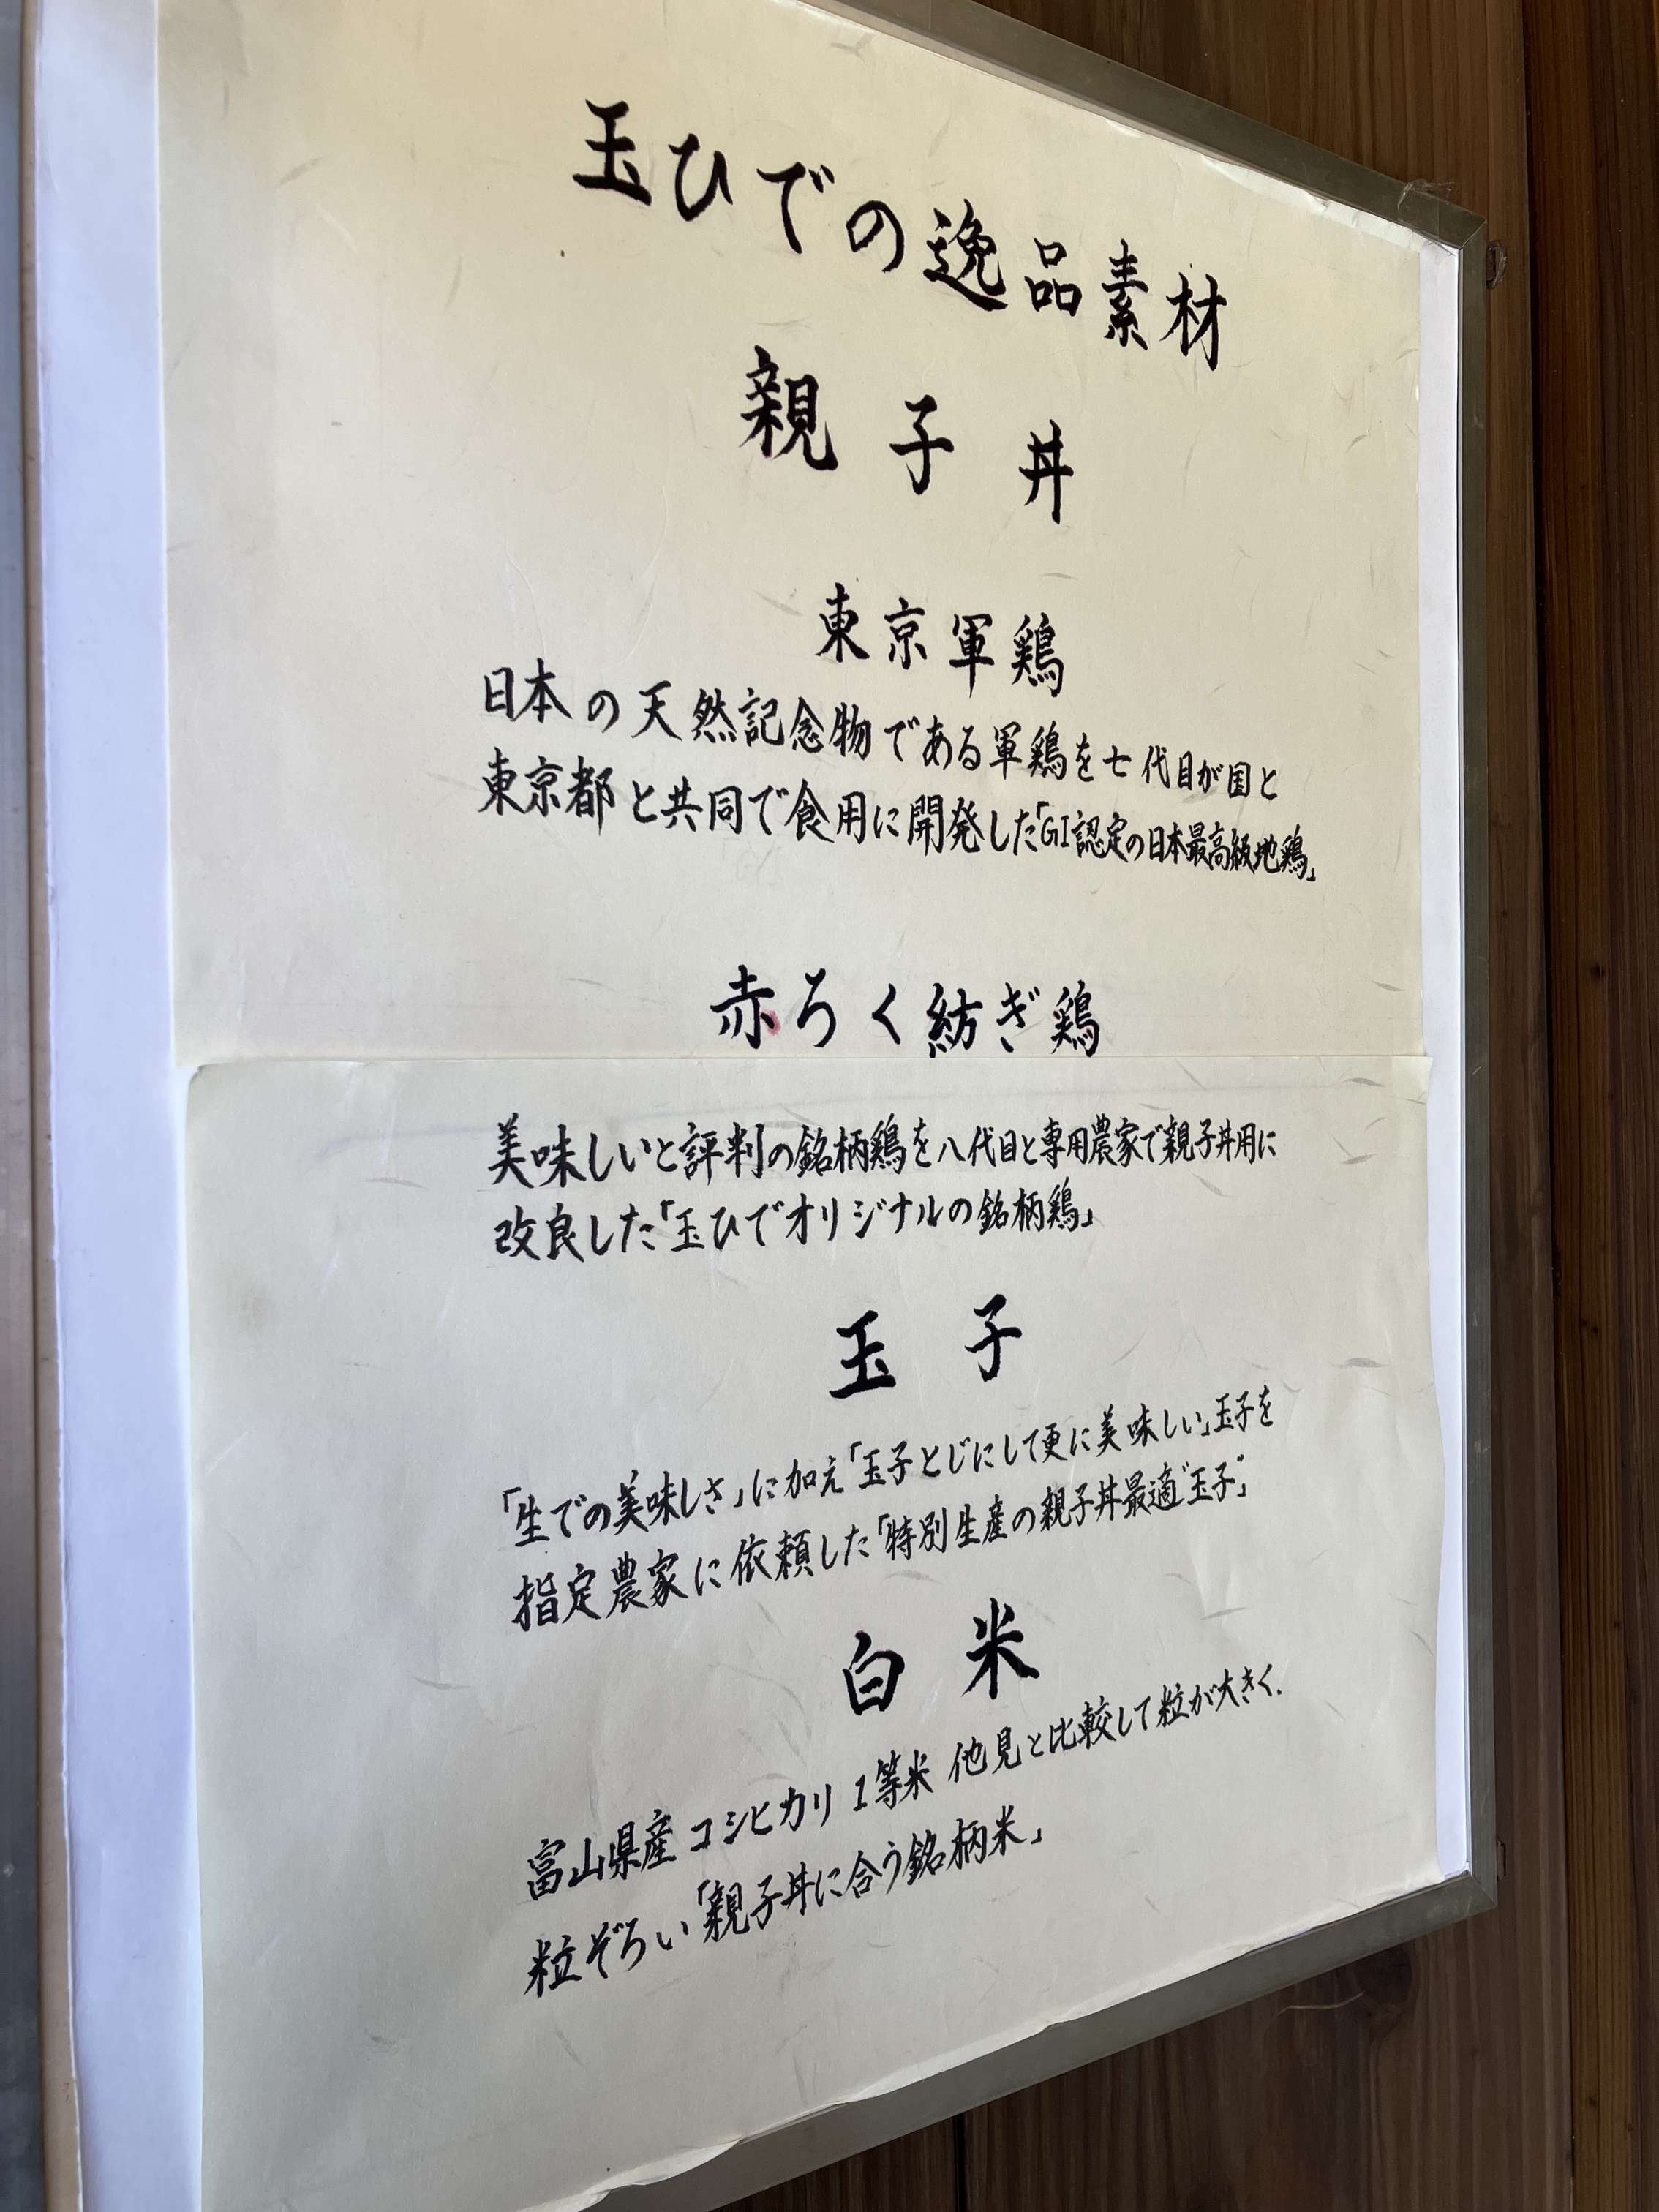 玉ひでの逸品素材
親子丼
東京軍鶏
日本の天然記念物である軍鶏を七代目が国と
東京都と共同で食用に開発した「GI認定の日本最高級地鶏」
赤ろく紡ぎ鶏
美味しいと評判の銘柄鶏を八代目と専用農家で親子丼用に
改良した「玉ひでオリジナルの銘柄鶏」
玉子
「生での美味しさ」に加え「玉子とじにして更に美味しい」玉子を
指定農家に依頼した「特別生産の親子丼最適“玉子”」
白米
富山県産コシヒカリ1等米 他見と比較して粒が大きく.
粒ぞろい「親子丼に合う銘柄米」